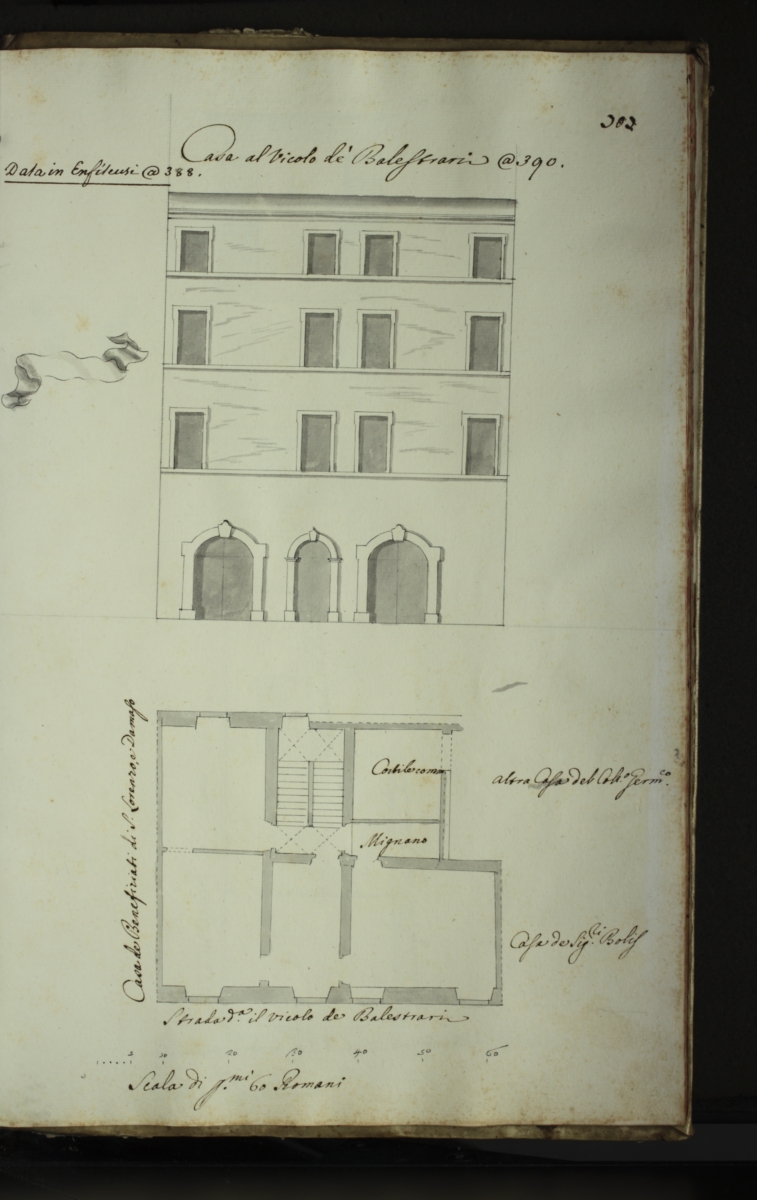 382
Casa al Vicolo de' Balestrari @ 390.
Data in Enfiteusi @ 388.
Casa de Benefiziati di S. Lorenzo, e Damaso
Cortile comm.
altra Casa del Coll.o Germ.co
Mignano
Casa de Sig.ri Bolis
Strada d.a il Vicolo de Balestrari
5 10 20 30 40 50 60
Scala di p.mi 60 Romani